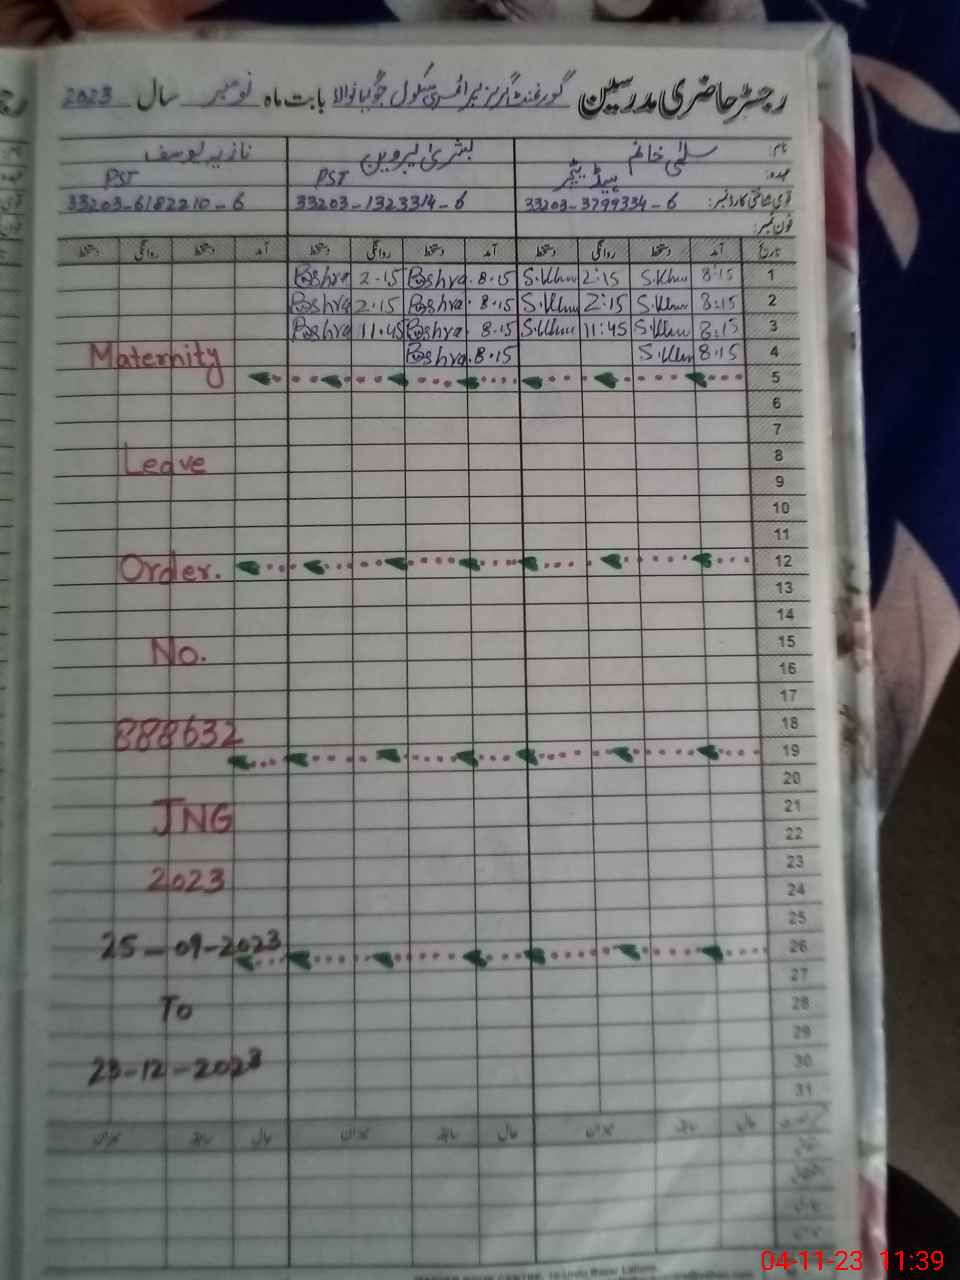 رجسٹر حاضری مدرسین گورنمنٹ گرلز پرائمری سکول بابت ماہ نومبر سال 2023
نام: سلمیٰ خانم بشریٰ پروین نازیہ یوسف
عہدہ: ہیڈ ٹیچر PST PST
قومی شناختی کارڈ نمبر: 33203-3799334-6 33203-1323314-6 33203-6182210-6
فون نمبر:
تاریخ آمد دستخط روانگی دستخط آمد دستخط روانگی دستخط آمد دستخط روانگی دستخط
1 8:15 S.Khan 2:15 S.Khan 8.15 Boshra 2.15 Boshra
2 8:15 S.Khan 2:15 S.Khan 8.15 Boshra 2.15 Boshra
3 8:15 S.Khan 11:45 S.Khan 8.15 Boshra 11.45 Boshra
4 8:15 S.Khan 8.15 Boshra
Maternity
5
6
7
8
Leave
9
10
11
12
Order.
13
14
15
No.
16
17
18
888632
19
20
21
JNG
22
23
2023
24
25
26
25-09-2023
27
28
To
29
30
23-12-2023
31
حال سابقہ میزان حال سابقہ میزان حال سابقہ میزان
04-11-23 11:39